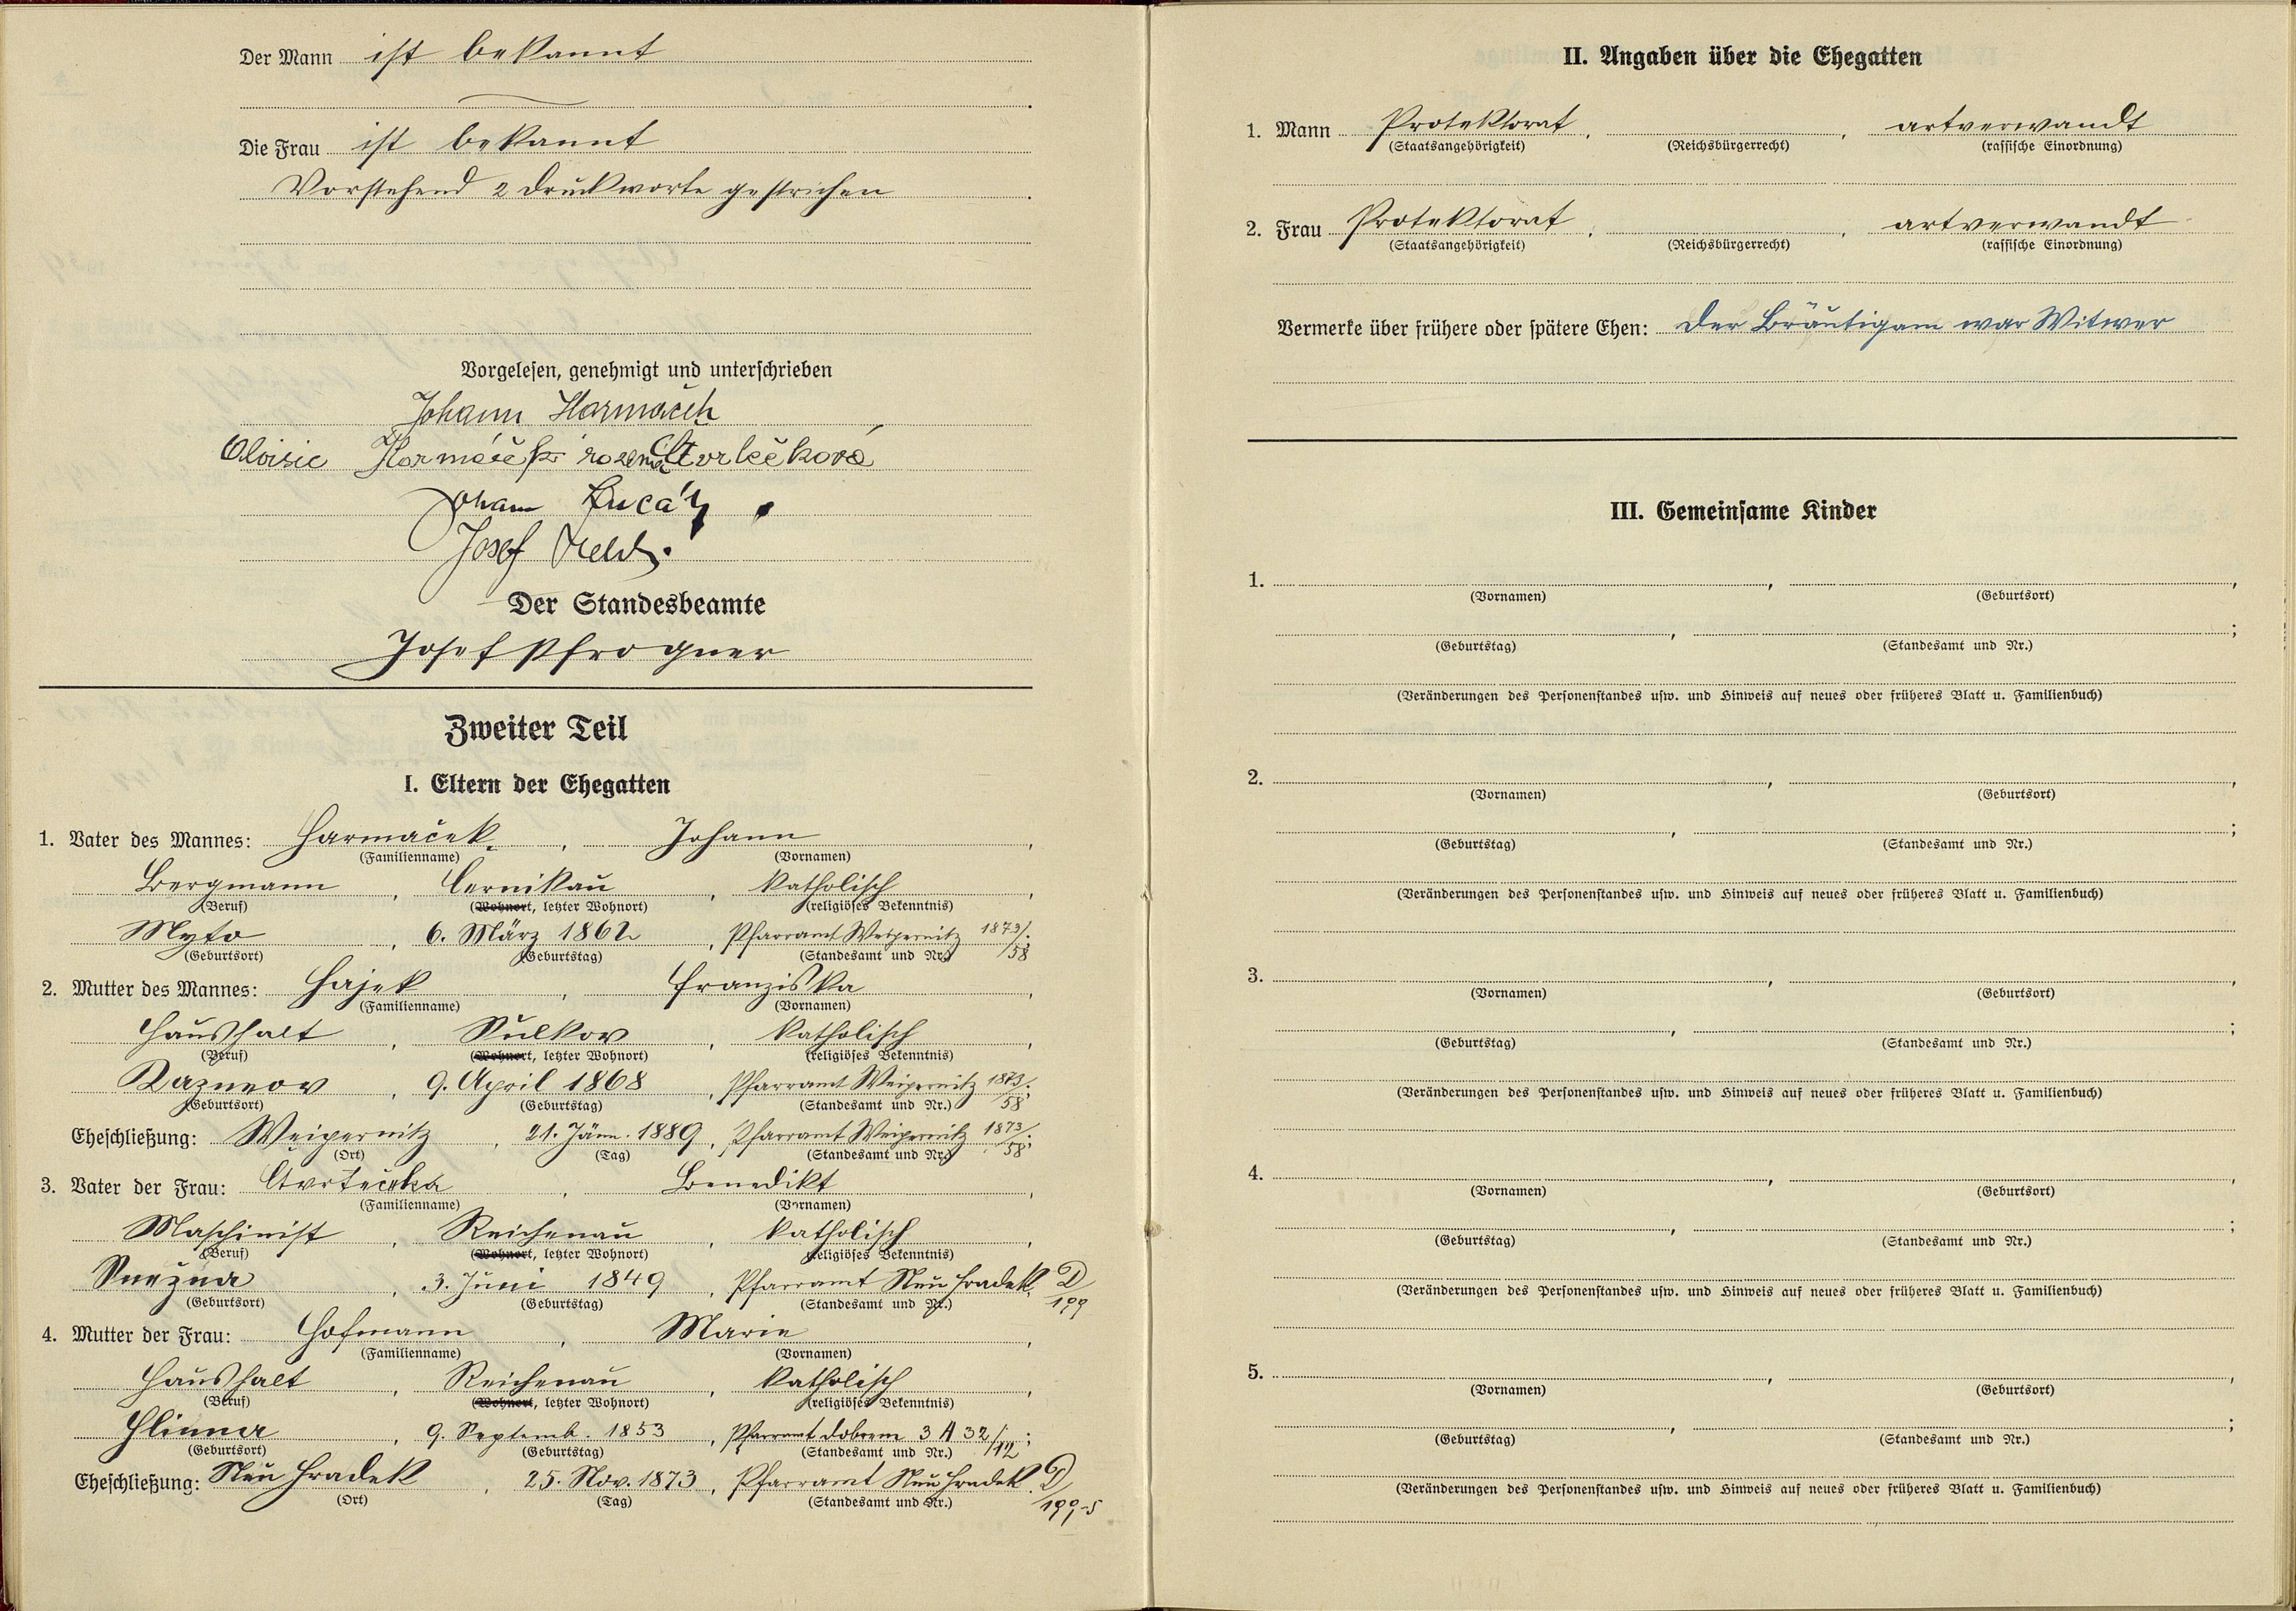 Der Mann ist bekannt
Die Frau ist bekannt
Vorstehend 2 Druckworte gestrichen
Vorgelesen, genehmigt und unterschrieben
Johann Harmaček
Aloisie
Johann
Josef
Der Standesbeamte
Josef Pfrogner
Zweiter Teil
I. Eltern der Ehegatten
1. Vater des Mannes: Harmaček, Johann,
(Familienname) (Vornamen)
Bergmann, Cernikau, katholisch,
(Beruf) (Wohnort, letzter Wohnort) (religiöses Bekenntnis)
Myto, 6. März 1862, Pfarramt Weipernitz 1873/58;
(Geburtsort) (Geburtstag) (Standesamt und Nr.)
2. Mutter des Mannes: Hajek, Franziska,
(Familienname) (Vornamen)
Haushalt, Sulkov, katholisch,
(Beruf) (Wohnort, letzter Wohnort) (religiöses Bekenntnis)
Kazneov, 9. April 1868, Pfarramt Weipernitz 1873/58;
(Geburtsort) (Geburtstag) (Standesamt und Nr.)
Eheschließung: Weipernitz, 21. Jänn. 1889, Pfarramt Weipernitz 1873/58;
(Ort) (Tag) (Standesamt und Nr.)
3. Vater der Frau: Čtvrtečka, Benedikt,
(Familienname) (Vornamen)
Maschinist, Reichenau, katholisch,
(Beruf) (Wohnort, letzter Wohnort) (religiöses Bekenntnis)
Snežna, 3. Juni 1849, Pfarramt Neu Hradek D/199
(Geburtsort) (Geburtstag) (Standesamt und Nr.)
4. Mutter der Frau: Hofmann, Marie,
(Familienname) (Vornamen)
Haushalt, Reichenau, katholisch,
(Beruf) (Wohnort, letzter Wohnort) (religiöses Bekenntnis)
Hlinna, 9. Septemb. 1853, Pfarramt Dobrem 3 A 32/12;
(Geburtsort) (Geburtstag) (Standesamt und Nr.)
Eheschließung: Neu Hradek, 25. Nov. 1873, Pfarramt Neu Hradek D/199-5
(Ort) (Tag) (Standesamt und Nr.)
II. Angaben über die Ehegatten
1. Mann Protektorat, , artverwandt
(Staatsangehörigkeit) (Reichsbürgerrecht) (rassische Einordnung)
2. Frau Protektorat, , artverwandt
(Staatsangehörigkeit) (Reichsbürgerrecht) (rassische Einordnung)
Vermerke über frühere oder spätere Ehen: Der Bräutigam war Witwer
III. Gemeinsame Kinder
1. , ,
(Vornamen) (Geburtsort)
, ;
(Geburtstag) (Standesamt und Nr.)
(Veränderungen des Personenstandes usw. und Hinweis auf neues oder früheres Blatt u. Familienbuch)
2. , ,
(Vornamen) (Geburtsort)
, ;
(Geburtstag) (Standesamt und Nr.)
(Veränderungen des Personenstandes usw. und Hinweis auf neues oder früheres Blatt u. Familienbuch)
3. , ,
(Vornamen) (Geburtsort)
, ;
(Geburtstag) (Standesamt und Nr.)
(Veränderungen des Personenstandes usw. und Hinweis auf neues oder früheres Blatt u. Familienbuch)
4. , ,
(Vornamen) (Geburtsort)
, ;
(Geburtstag) (Standesamt und Nr.)
(Veränderungen des Personenstandes usw. und Hinweis auf neues oder früheres Blatt u. Familienbuch)
5. , ,
(Vornamen) (Geburtsort)
, ;
(Geburtstag) (Standesamt und Nr.)
(Veränderungen des Personenstandes usw. und Hinweis auf neues oder früheres Blatt u. Familienbuch)